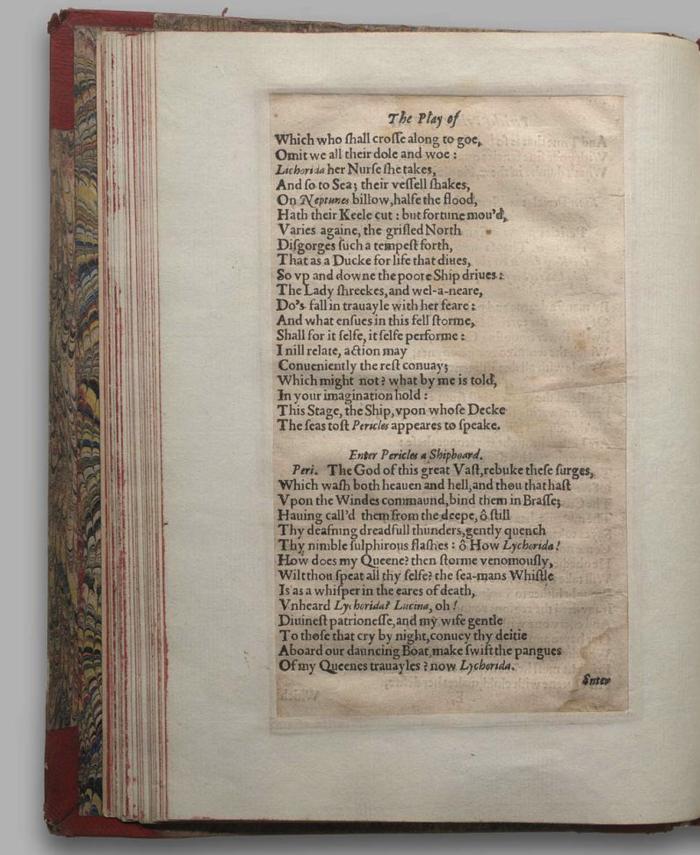 The Play of
Which who ſhall croſſe along to goe,
Omit we all their dole and woe :
Lichorida her Nurſe ſhe takes,
And ſo to Sea; their veſſell ſhakes,
On Neptunes billow, halfe the flood,
Hath their Keele cut : but fortune mou'd,
Varies againe, the griſled North
Diſgorges ſuch a tempeſt forth,
That as a Ducke for life that diues,
So vp and downe the poore Ship driues :
The Lady ſhreekes, and wel-a-neare,
Do's fall in trauayle with her feare :
And what enſues in this fell ſtorme,
Shall for it ſelfe, it ſelfe performe :
I nill relate, action may
Conueniently the reſt conuay;
Which might not? what by me is told,
In your imagination hold :
This Stage, the Ship, vpon whoſe Decke
The ſeas toſt Pericles appeares to ſpeake.
Enter Pericles a Shipboard.
Peri. The God of this great Vaſt, rebuke theſe ſurges,
Which waſh both heauen and hell, and thou that haſt
Vpon the Windes commaund, bind them in Braſſe;
Hauing call'd them from the deepe, ô ſtill
Thy deafning dreadfull thunders, gently quench
Thy nimble ſulphirous flaſhes : ô How Lychorida!
How does my Queene? then ſtorme venomouſly,
Wilt thou ſpeat all thy ſelfe? the ſea-mans Whiſtle
Is as a whiſper in the eares of death,
Vnheard Lychorida? Lucina, oh!
Diuineſt patroneſſe, and my wife gentle
To thoſe that cry by night, conuey thy deitie
Aboard our dauncing Boat, make ſwift the pangues
Of my Queenes trauayles? now Lychorida.
Enter